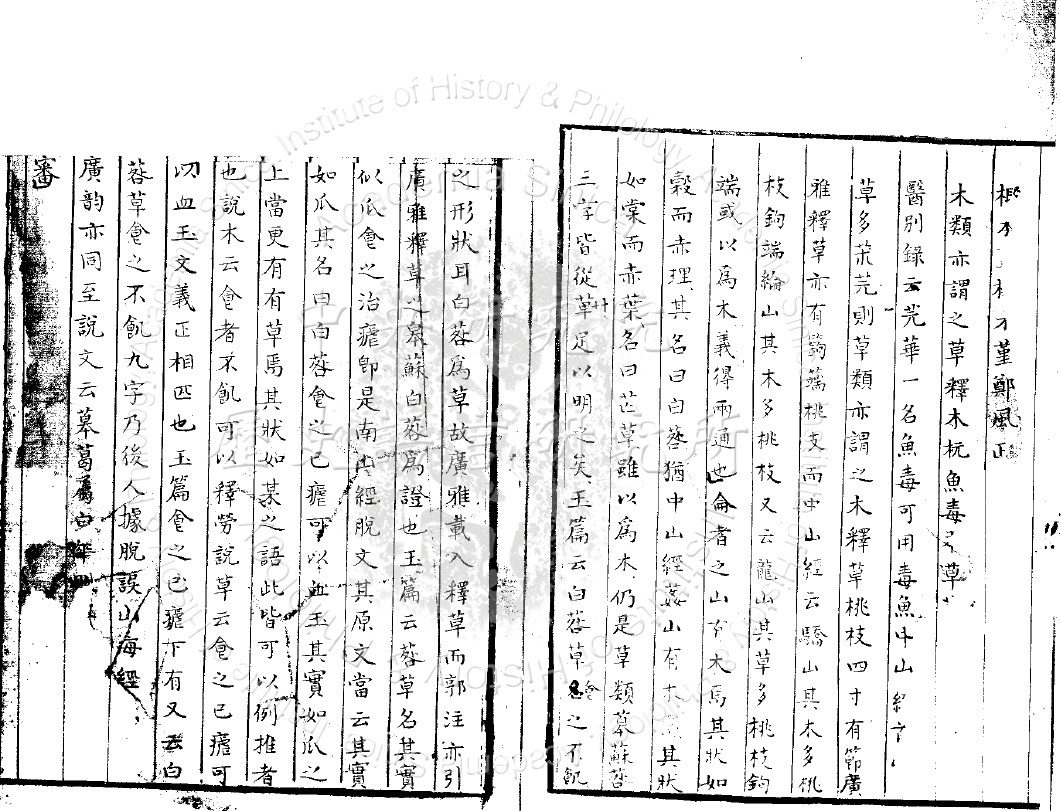 木類亦謂之草釋木杬魚毒
醫別錄云芫華一名魚毒可用毒魚中山
草多芒芫則草類亦謂之木釋草桃枝四寸有節廣
雅釋草亦有鉤端桃支而中山經云驕山其木多桃
枝鉤端綸山其木多桃枝又云龍山其草多桃枝鉤
端或以為木義得兩通也侖者之山有木焉其狀如
榖而赤理其名曰白䓘猶中山經葌山有木其狀
如棠而赤葉名曰芒草雖以為木仍是草類蓽蘇䓘
三字皆從草足以明之矣玉篇云白䓘草食之不飢
之形狀耳白䓘為草故廣雅載入釋草而郭注亦引
廣雅釋草之蓽蘇白䓘為證也玉篇云䓘草名其實
似瓜食之治瘧即是南山經脫文其原文當云其實
如瓜其名曰白䓘食之已瘧可以血玉其實如瓜之
上當更有有草焉其狀如某之語此皆可以例推者
也說木云食者不飢可以釋勞說草云食之已瘧可
以血玉文義正相匹也玉篇食之已瘧下有又云白
䓘草食之不飢九字乃後人據脫誤山海經
廣韵亦同至說文云蓽葛屬白
審